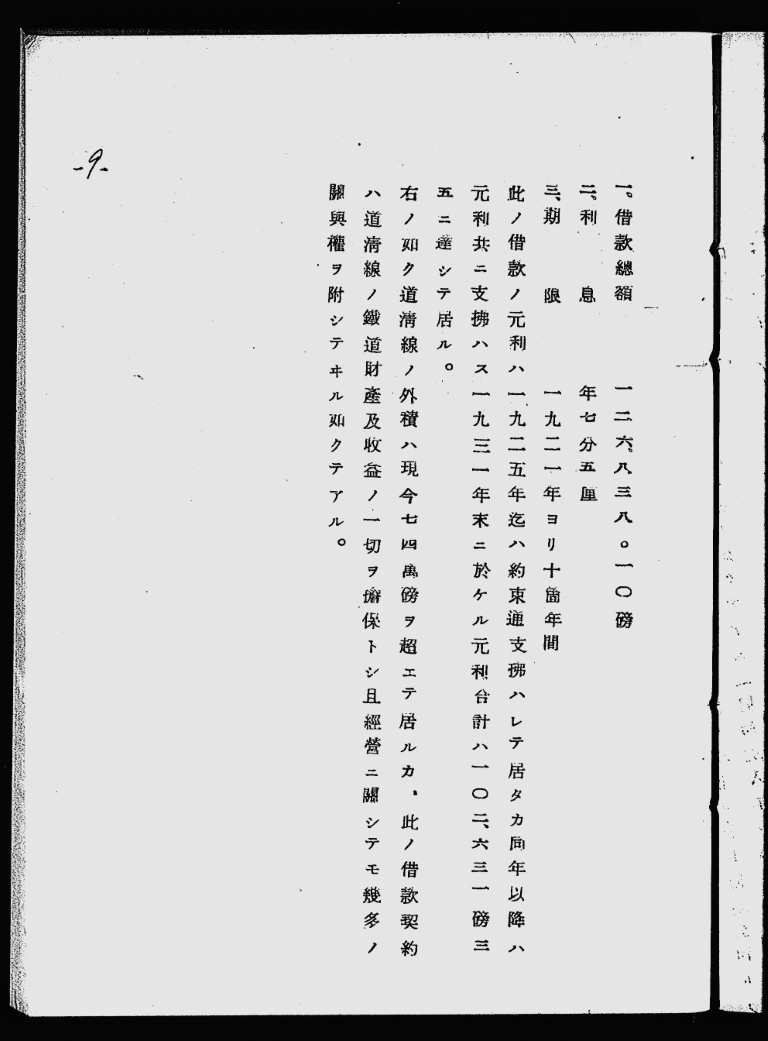 -9-
一。借款總額　一二六、八三八。一〇磅
二。利息　年七分五厘
三、期限　一九二一年ヨリ十箇年間
此ノ借款ノ元利ハ一九二五年迄ハ約束通支拂ハレテ居タカ同年以降ハ
元利共ニ支拂ハス一九三一年末ニ於ケル元利合計ハ一〇二、六三一磅三
五ニ達シテ居ル。
右ノ如ク道淸線ノ外積ハ現今七四萬磅ヲ超エテ居ルカ、此ノ借款契約
ハ道淸線ノ鐵道財產及收益ノ一切ヲ擔保トシ且經營ニ關シテモ幾多ノ
關與權ヲ附シテヰル如クテアル。